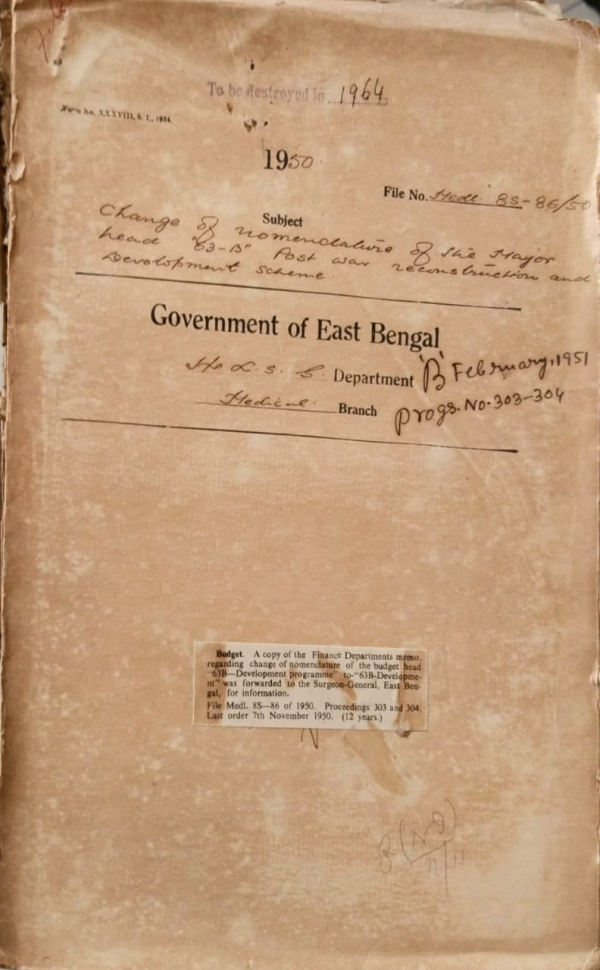 To be destroyed in 1964
Form No. XXXVIII, S. I., 1934.
1950
File No. Medl. 8S-86/50
Subject
Change of nomenclature of the Major
head "63-B" Post war reconstruction and
Development scheme.
Government of East Bengal
H. & L. S. G. Department 'B' February, 1951
Medical Branch Progs. No. 303-304
Budget. A copy of the Finance Departments memo.
regarding change of nomenclature of the budget head
"63B—Development programme" to "63B-Developme-
nt" was forwarded to the Surgeon-General, East Ben-
gal, for information.
File Medl. 8S—86 of 1950. Proceedings 303 and 304.
Last order 7th November 1950. (12 years.)